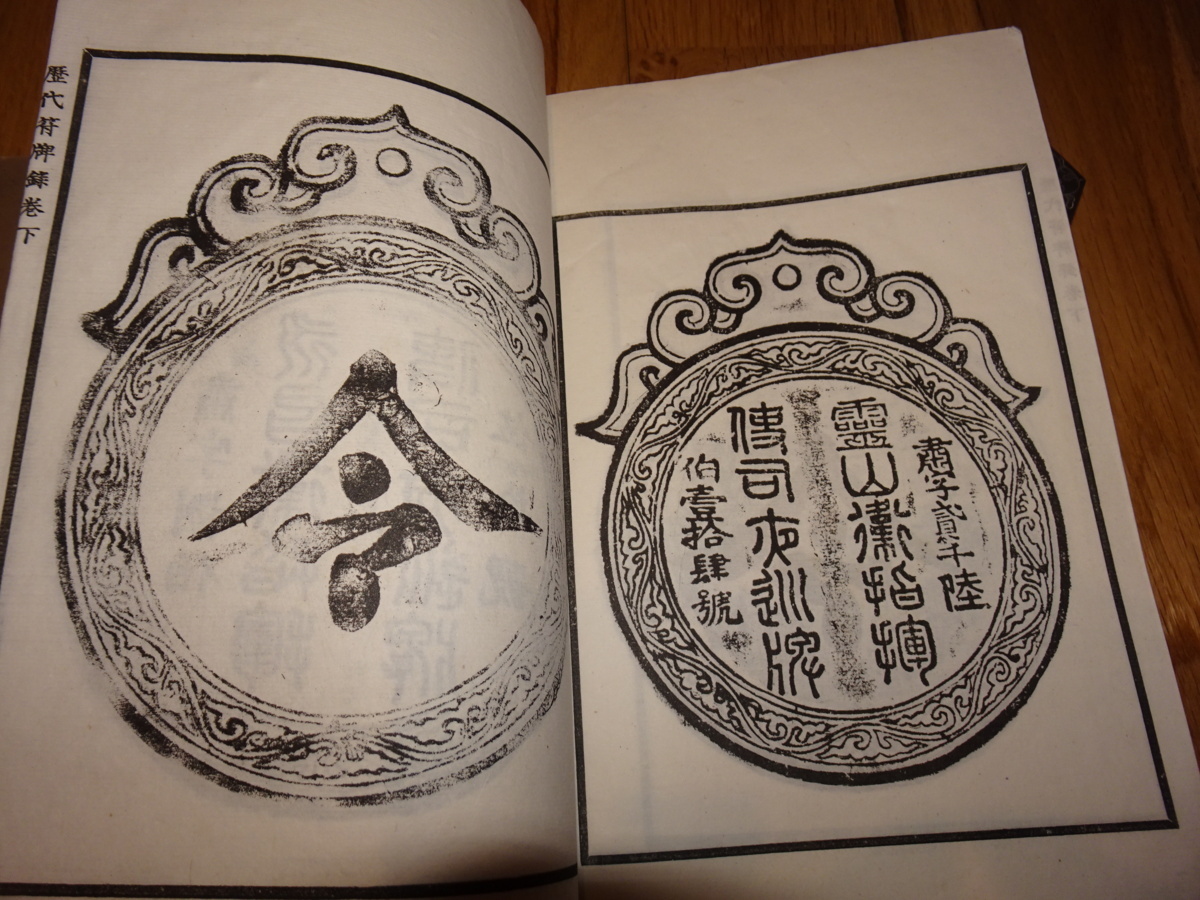 肅字貳千陸
靈山衞指揮
使司夜巡牌
伯壹拾肆號
令
歷代符牌錄卷下